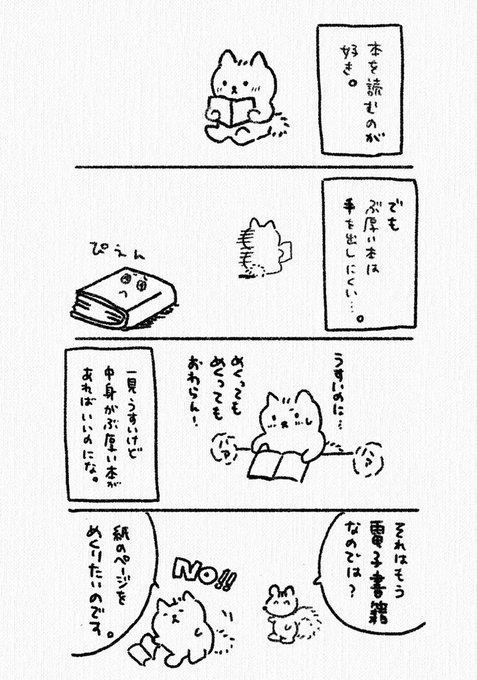 本を読むのが
好き。
でも
ぶ厚い本は
手を出しにくい…。
ぴえん
うすいのに…
めくっても
めくっても
おわらん!
パァ
パァ
一見うすいけど
中身がぶ厚い本が
あればいいのにな。
それはもう
電子書籍
なのでは?
NO!!
紙のページを
めくりたいのです。